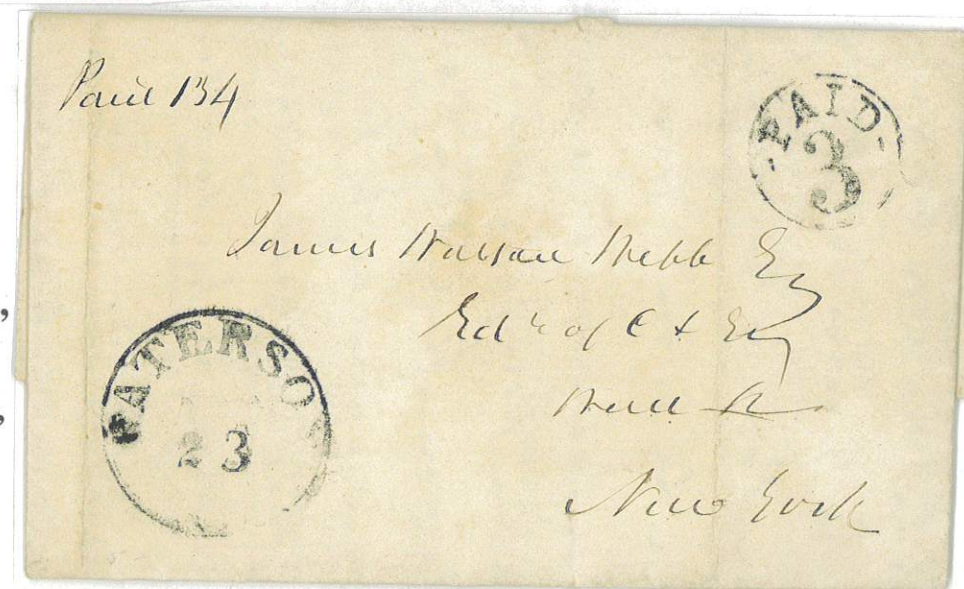 Paid 134
-PAID-
3
James Watson Webb Esq
Edr of C & Enq
Wall St
New York
PATERSO
23